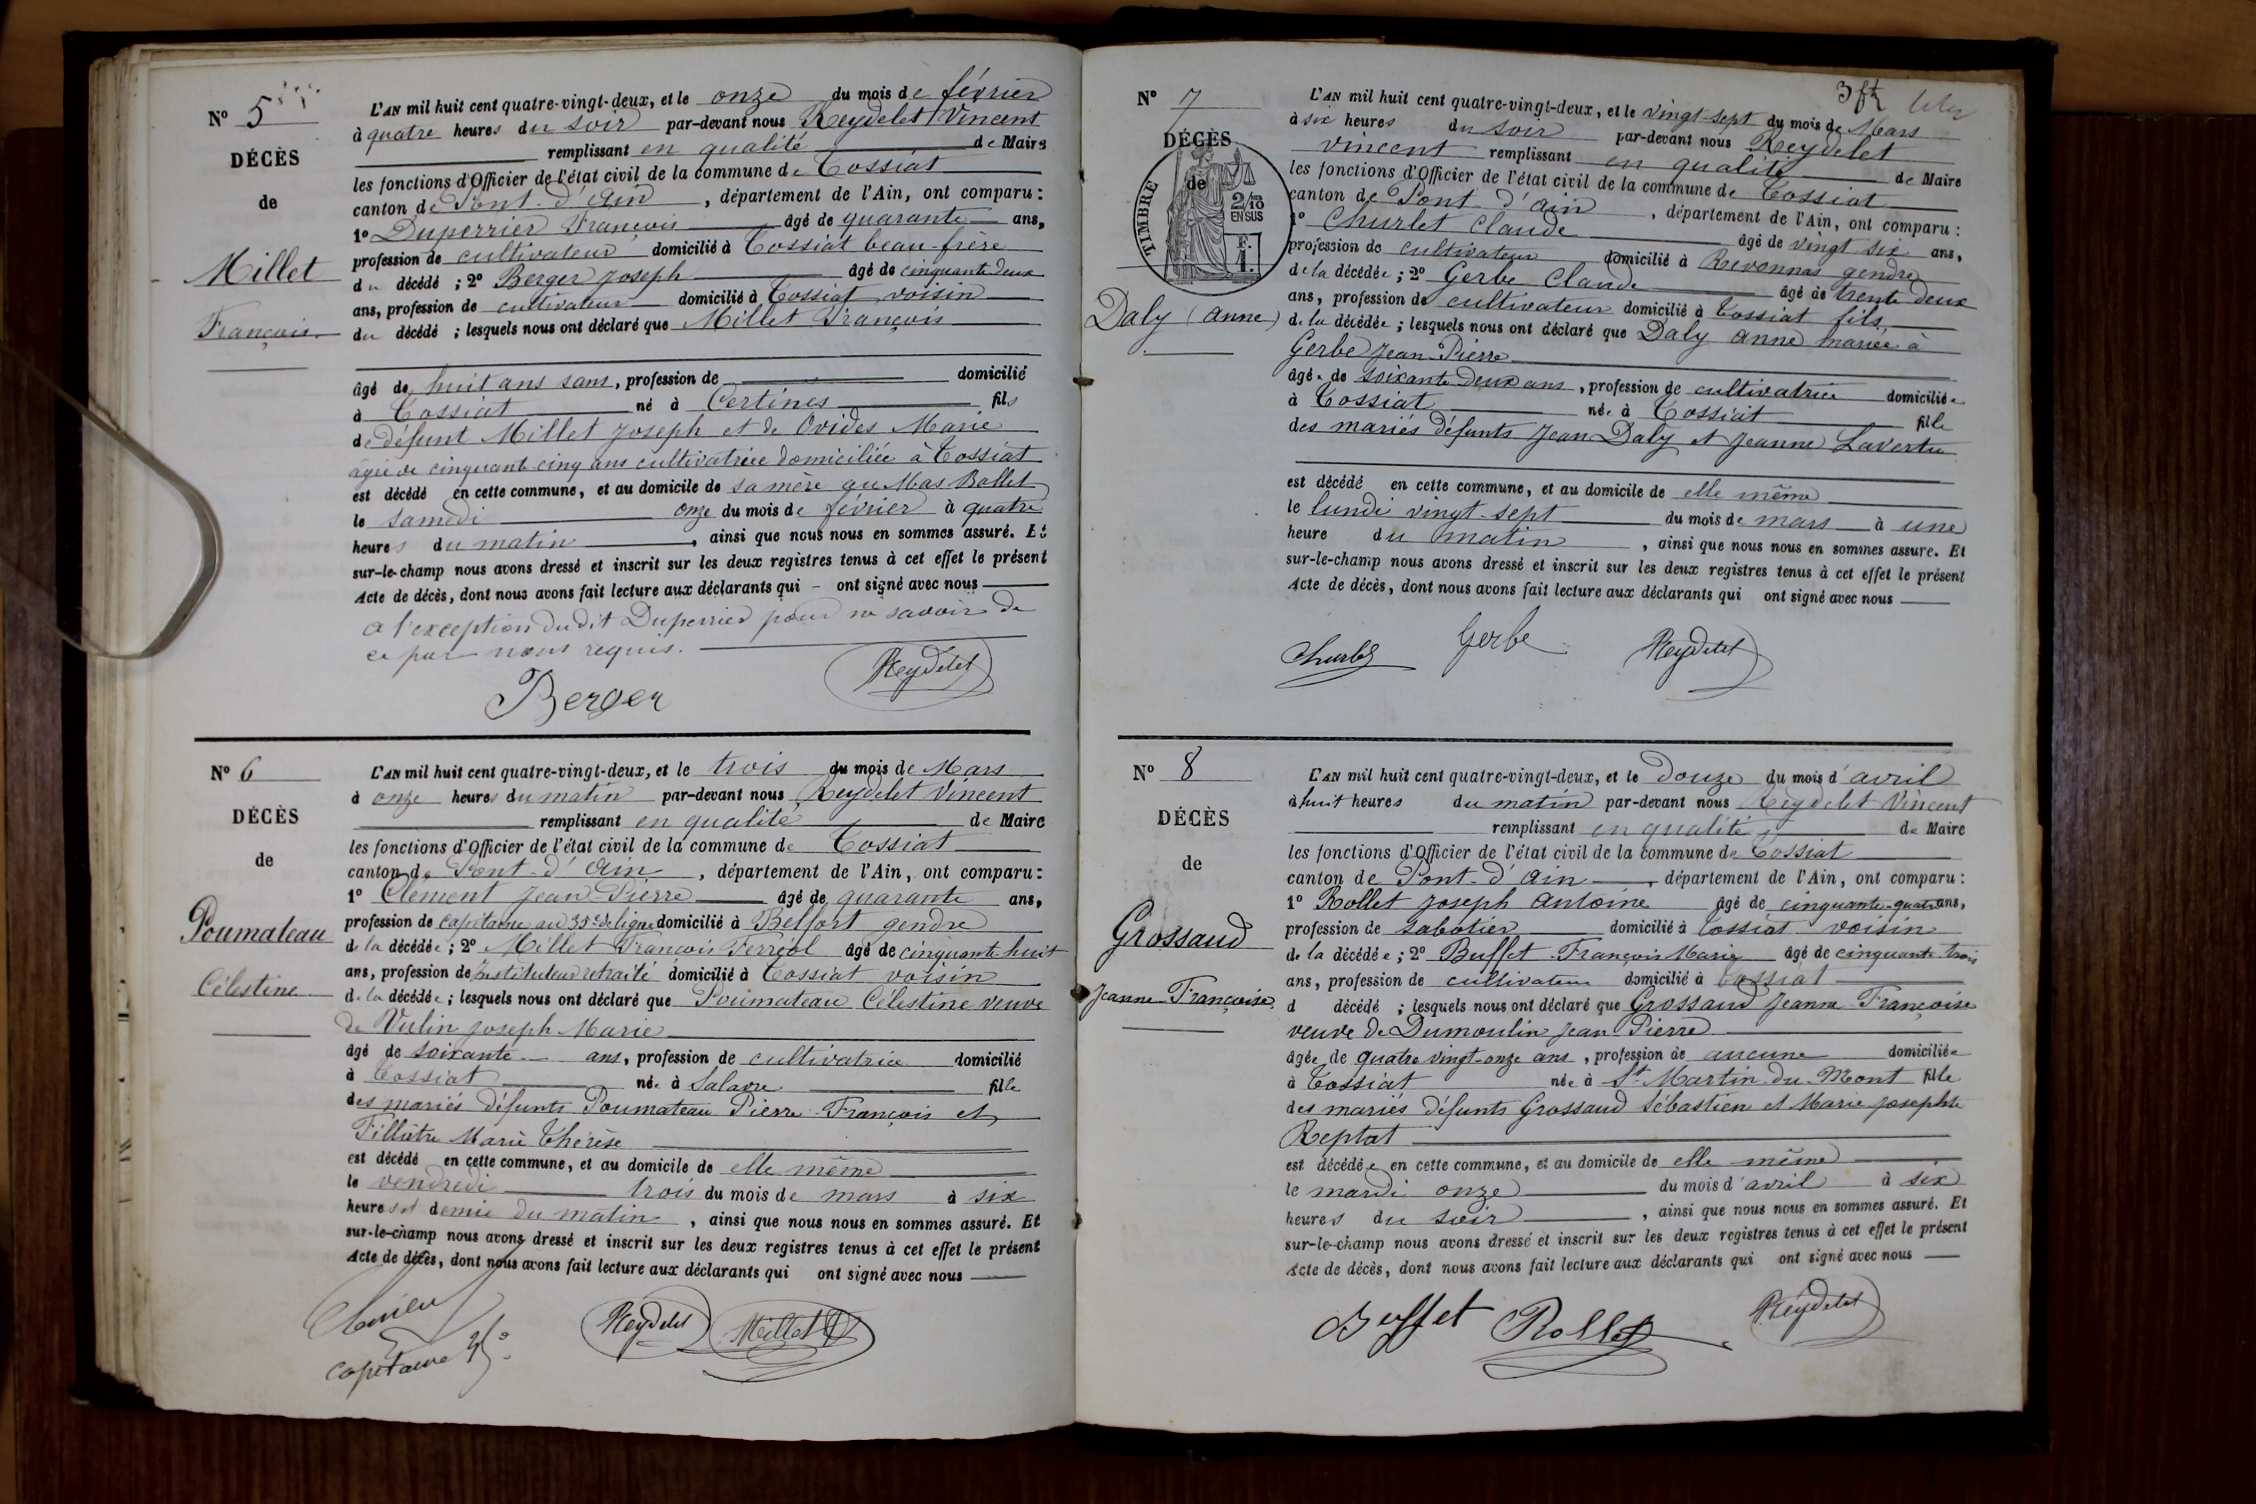 N° 5
DÉCÈS
de
Millet
François
L'AN mil huit cent quatre-vingt-deux, et le onze du mois de février
à quatre heures du soir par-devant nous Reydelet Vincent
remplissant en qualité de Maire
les fonctions d'Officier de l'état civil de la commune de Tossiat
canton de Pont-d'Ain, département de l'Ain, ont comparu :
1° Duperrier François âgé de quarante ans,
profession de cultivateur domicilié à Tossiat beau-frère
du décédé ; 2° Berger Joseph âgé de cinquante deux
ans, profession de cultivateur domicilié à Tossiat voisin
du décédé ; lesquels nous ont déclaré que Millet François
âgé de huit ans sans, profession de domicilié
à Tossiat né à Certines fils
de défunt Millet Joseph et de Ovides Marie
agée de cinquante cinq ans cultivatrice domiciliée à Tossiat
est décédé en cette commune, et au domicile de sa mère au Mas Rollet
le samedi onze du mois de février à quatre
heures du matin, ainsi que nous nous en sommes assuré. Et
sur-le-champ nous avons dressé et inscrit sur les deux registres tenus à cet effet le présent
Acte de décès, dont nous avons fait lecture aux déclarants qui - ont signé avec nous
a l'exception du dit Duperrier pour ne savoir de
ce par nous requis.
Berger Reydelet
N° 6
DÉCÈS
de
Poumateau
Célestine
L'AN mil huit cent quatre-vingt-deux, et le trois du mois de Mars
à onze heures du matin par-devant nous Reydelet Vincent
remplissant en qualité de Maire
les fonctions d'Officier de l'état civil de la commune de Tossiat
canton de Pont-d'Ain, département de l'Ain, ont comparu :
1° Clément Jean-Pierre âgé de quarante ans,
profession de capitaine au 35e de ligne domicilié à Belfort gendre
de la décédée ; 2° Millet François Ferréol âgé de cinquante huit
ans, profession de Instituteur retraité domicilié à Tossiat voisin
de la décédée ; lesquels nous ont déclaré que Poumateau Célestine veuve
de Vulin Joseph-Marie
âgé de soixante ans, profession de cultivatrice domicilié
à Tossiat née à Salavre fille
des mariés défunts Poumateau Pierre-François et
Fillâtre Marie Thérèse
est décédé en cette commune, et au domicile de elle même
le vendredi trois du mois de mars à six
heures et demie du matin, ainsi que nous nous en sommes assuré. Et
sur-le-champ nous avons dressé et inscrit sur les deux registres tenus à cet effet le présent
Acte de décès, dont nous avons fait lecture aux déclarants qui ont signé avec nous
Reydelet Millet
capitaine
3 ft
N° 7
DÉCÈS
de
TIMBRE
2/10
EN SUS
F.
1.
Daly (Anne)
L'AN mil huit cent quatre-vingt-deux, et le vingt-sept du mois de Mars
à six heures du soir par-devant nous Reydelet
Vincent remplissant en qualité de Maire
les fonctions d'Officier de l'état civil de la commune de Tossiat
canton de Pont-d'ain, département de l'Ain, ont comparu :
1° Churlet Claude âgé de vingt six ans,
profession de cultivateur domicilié à Revonnas gendre
de la décédée ; 2° Gerbe Claude âgé de trente deux
ans, profession de cultivateur domicilié à Tossiat fils
de la décédée ; lesquels nous ont déclaré que Daly Anne mariée à
Gerbe Jean-Pierre
âgée de soixante deux ans, profession de cultivatrice domiciliée
à Tossiat née à Tossiat fille
des mariés défunts Jean Daly et Jeanne Lavertu
est décédé en cette commune, et au domicile de elle même
le lundi vingt-sept du mois de mars à une
heure du matin, ainsi que nous nous en sommes assuré. Et
sur-le-champ nous avons dressé et inscrit sur les deux registres tenus à cet effet le présent
Acte de décès, dont nous avons fait lecture aux déclarants qui ont signé avec nous
Churlet Gerbe Reydelet
N° 8
DÉCÈS
de
Grossaud
Jeanne-Françoise
L'AN mil huit cent quatre-vingt-deux, et le Douze du mois d'avril
à huit heures du matin par-devant nous Reydelet Vincent
remplissant en qualité de Maire
les fonctions d'Officier de l'état civil de la commune de Tossiat
canton de Pont-d'ain, département de l'Ain, ont comparu :
1° Rollet Joseph Antoine âgé de cinquante-quatre ans,
profession de sabotier domicilié à Tossiat voisin
de la décédée ; 2° Buffet François Marie âgé de cinquante-trois
ans, profession de cultivateur domicilié à Tossiat
d décédé ; lesquels nous ont déclaré que Grossaud Jeanne-Françoise
veuve de Dumoulin Jean Pierre
âgée de quatre vingt-onze ans, profession de aucune domiciliée
à Tossiat née à St Martin-du-Mont fille
des mariés défunts Grossaud Sébastien et Marie Josephte
Reptat
est décédée en cette commune, et au domicile de elle même
le mardi onze du mois d'avril à six
heures du soir, ainsi que nous nous en sommes assuré. Et
sur-le-champ nous avons dressé et inscrit sur les deux registres tenus à cet effet le présent
Acte de décès, dont nous avons fait lecture aux déclarants qui ont signé avec nous
Buffet Rollet Reydelet